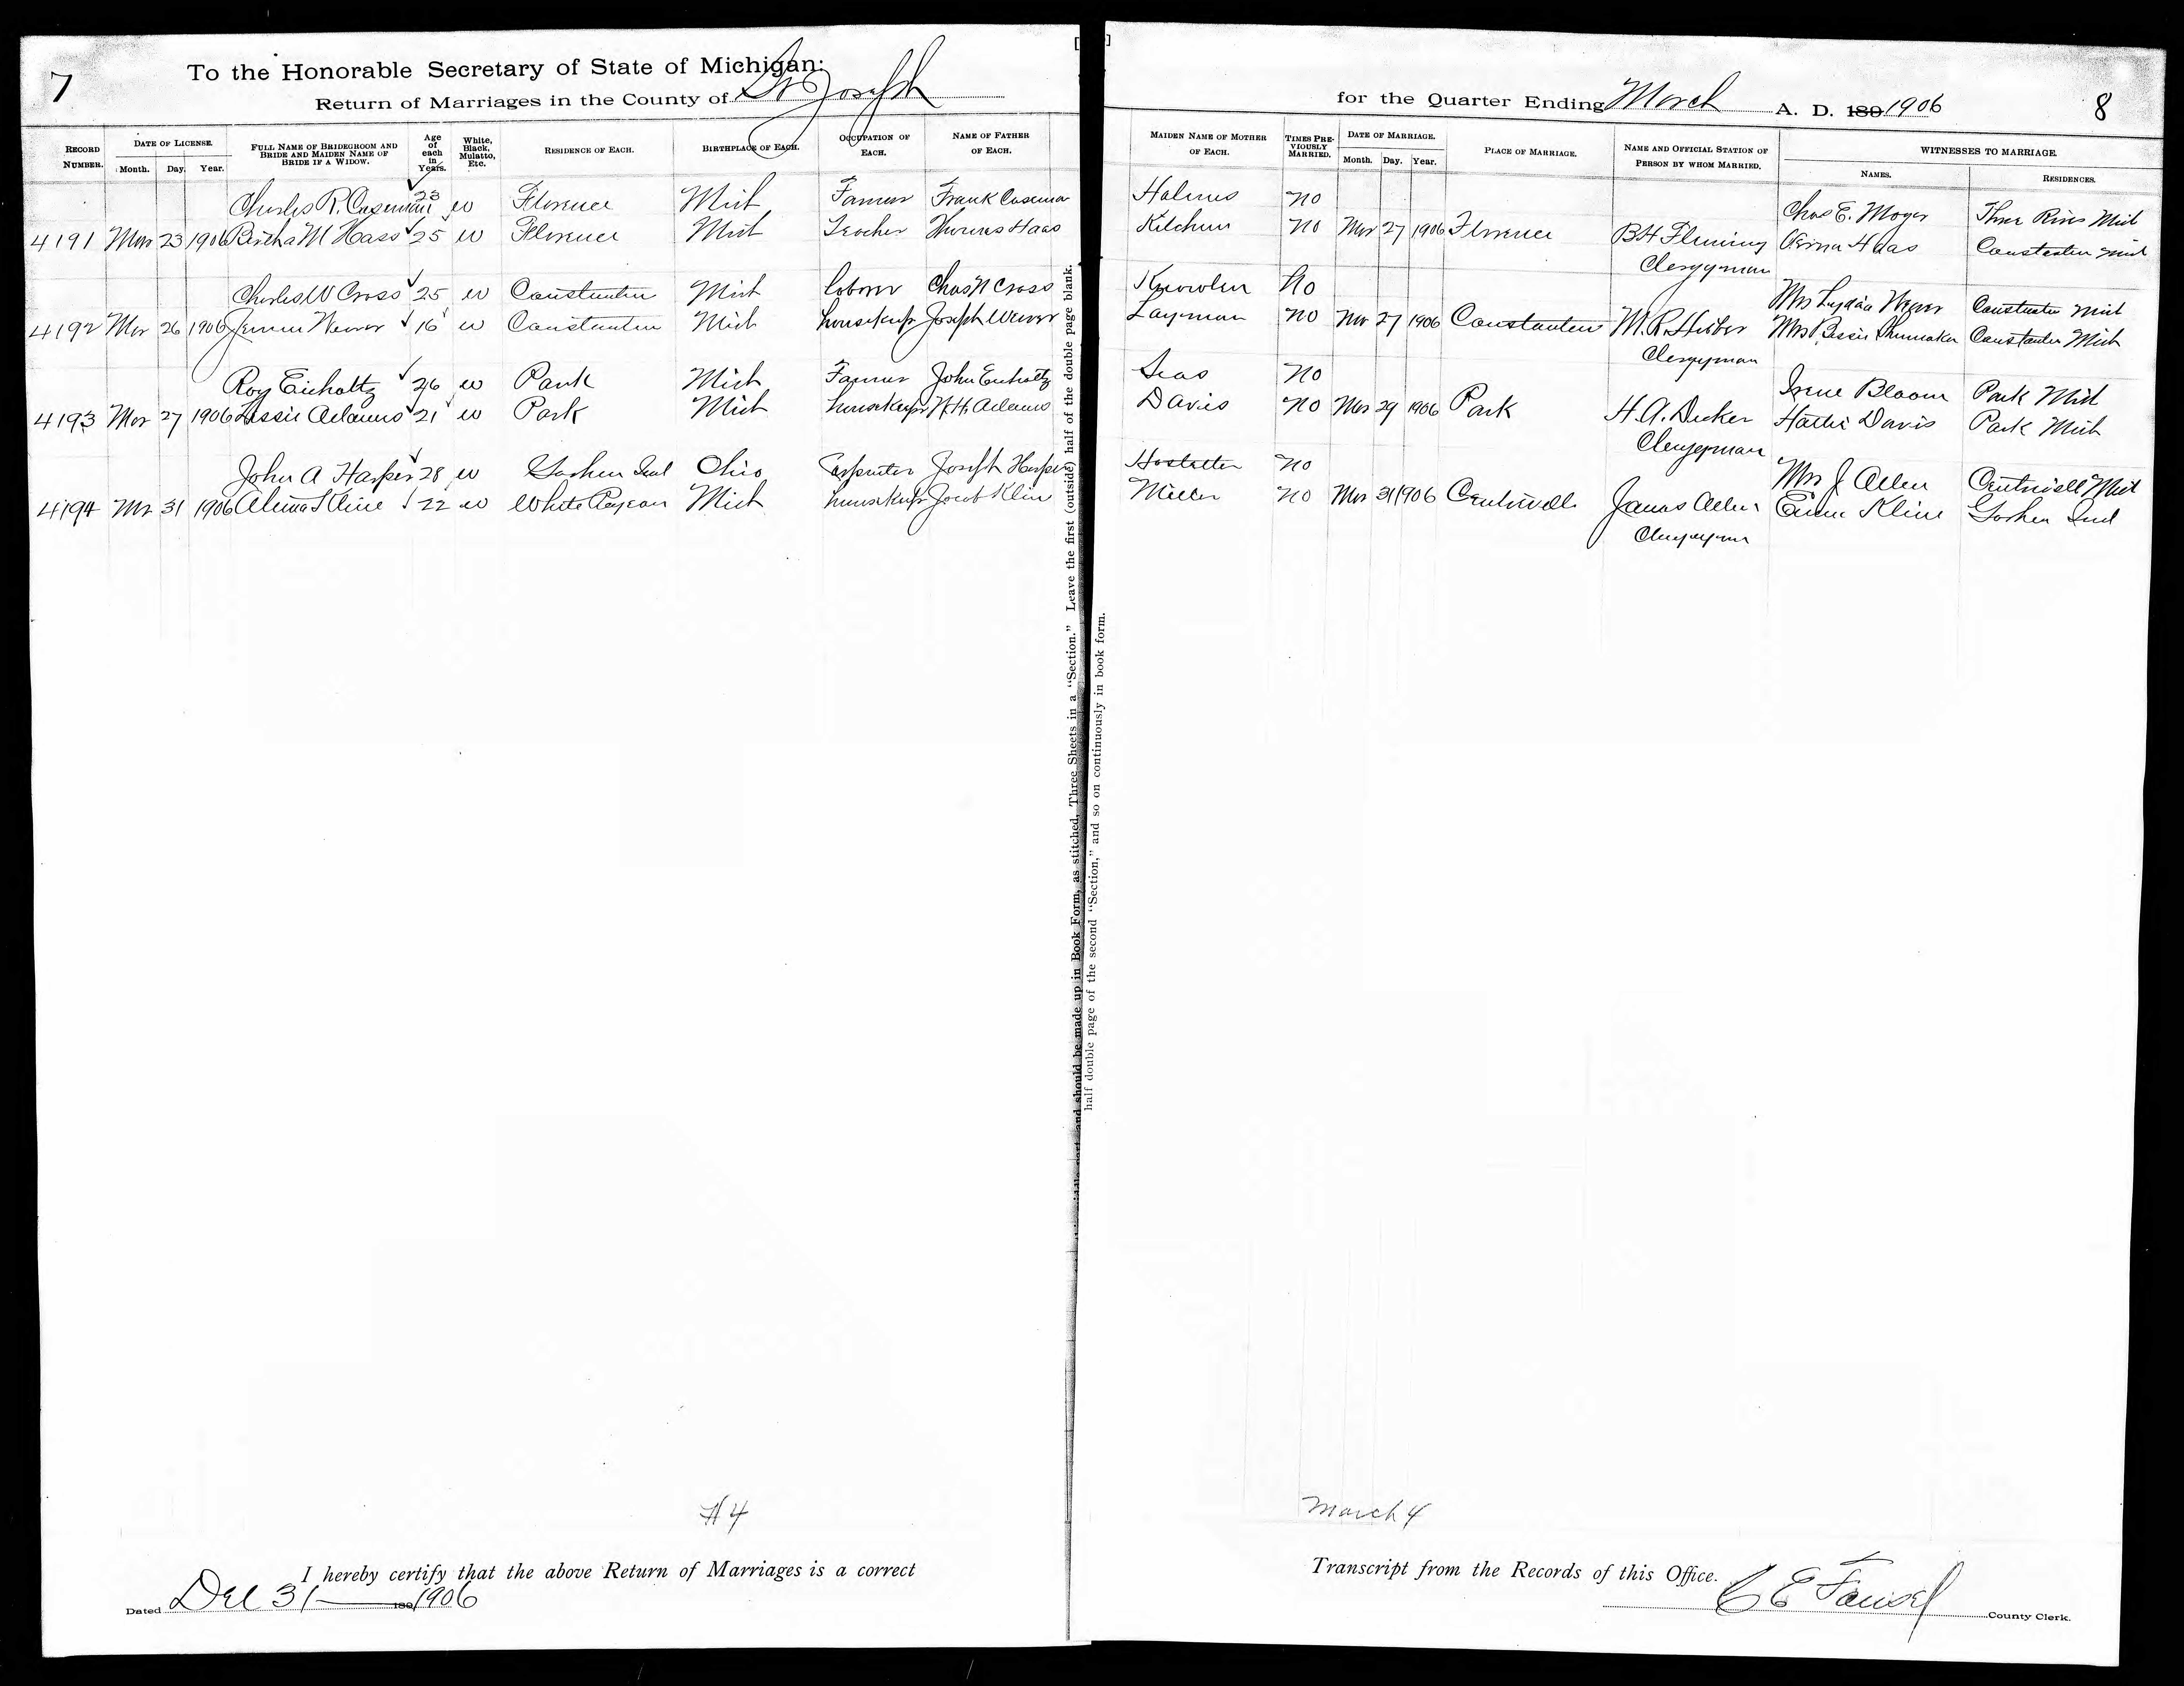 7
To the Honorable Secretary of State of Michigan:
Return of Marriages in the County of St Joseph
for the Quarter Ending March A. D. 189 1906
8
RECORD NUMBER.
DATE OF LICENSE.
Month. Day. Year.
FULL NAME OF BRIDEGROOM AND BRIDE AND MAIDEN NAME OF BRIDE IF A WIDOW.
Age of each in Years.
White, Black, Mulatto, Etc.
RESIDENCE OF EACH.
BIRTHPLACE OF EACH.
OCCUPATION OF EACH.
NAME OF FATHER OF EACH.
MAIDEN NAME OF MOTHER OF EACH.
TIMES PREVIOUSLY MARRIED.
DATE OF MARRIAGE.
Month. Day. Year.
PLACE OF MARRIAGE.
NAME AND OFFICIAL STATION OF PERSON BY WHOM MARRIED.
WITNESSES TO MARRIAGE.
NAMES.
RESIDENCES.
Charles R. Caseman 23 W Florence Mich Farmer Frank Casema Holmes No Chas E. Moyer Three Rivers Mich
4191 Mar 23 1906 Bertha M Hass 25 W Florence Mich Teacher Thomas Haas Ketchum No Mar 27 1906 Florence B H Fleming Verna Haas Constantin Mich
Clergyman
Charles W Cross 25 W Constantin Mich laborer Chas N Cross Knowlen No Mrs Lydia Constantin Mich
4192 Mar 26 1906 16 W Constantin Mich housekeepr Joseph Weaver Layman No Mar 27 1906 Constantin Mrs Bessie Shumaker Constantin Mich
Clergyman
Roy Eicholtz 26 W Park Mich Farmer John Eicholtz Seas No Irene Bloom Park Mich
4193 Mar 27 1906 Lessie Adams 21 W Park Mich housekeepr Adams Davis No Mar 29 1906 Park H. A. Decker Hattie Davis Park Mich
Clergyman
John A Harper 28 W Goshen Ind Ohio Carpenter Joseph Harper Hostetter No Mrs J Allen Centrivill Mich
4194 Mr 31 1906 Kline 22 W White Pegeon Mich housekeepr Jacob Kline Miller No Mar 31 1906 Centrivill James Allen Kline Goshen Ind
Clergyman
Leave the first (outside) half of the double page blank.
and should be made up in Book Form, as stitched, Three Sheets in a "Section."
half double page of the second "Section," and so on continuously in book form.
#4
March 4
I hereby certify that the above Return of Marriages is a correct
Transcript from the Records of this Office.
Dated Dec 31 189 1906
C E County Clerk.